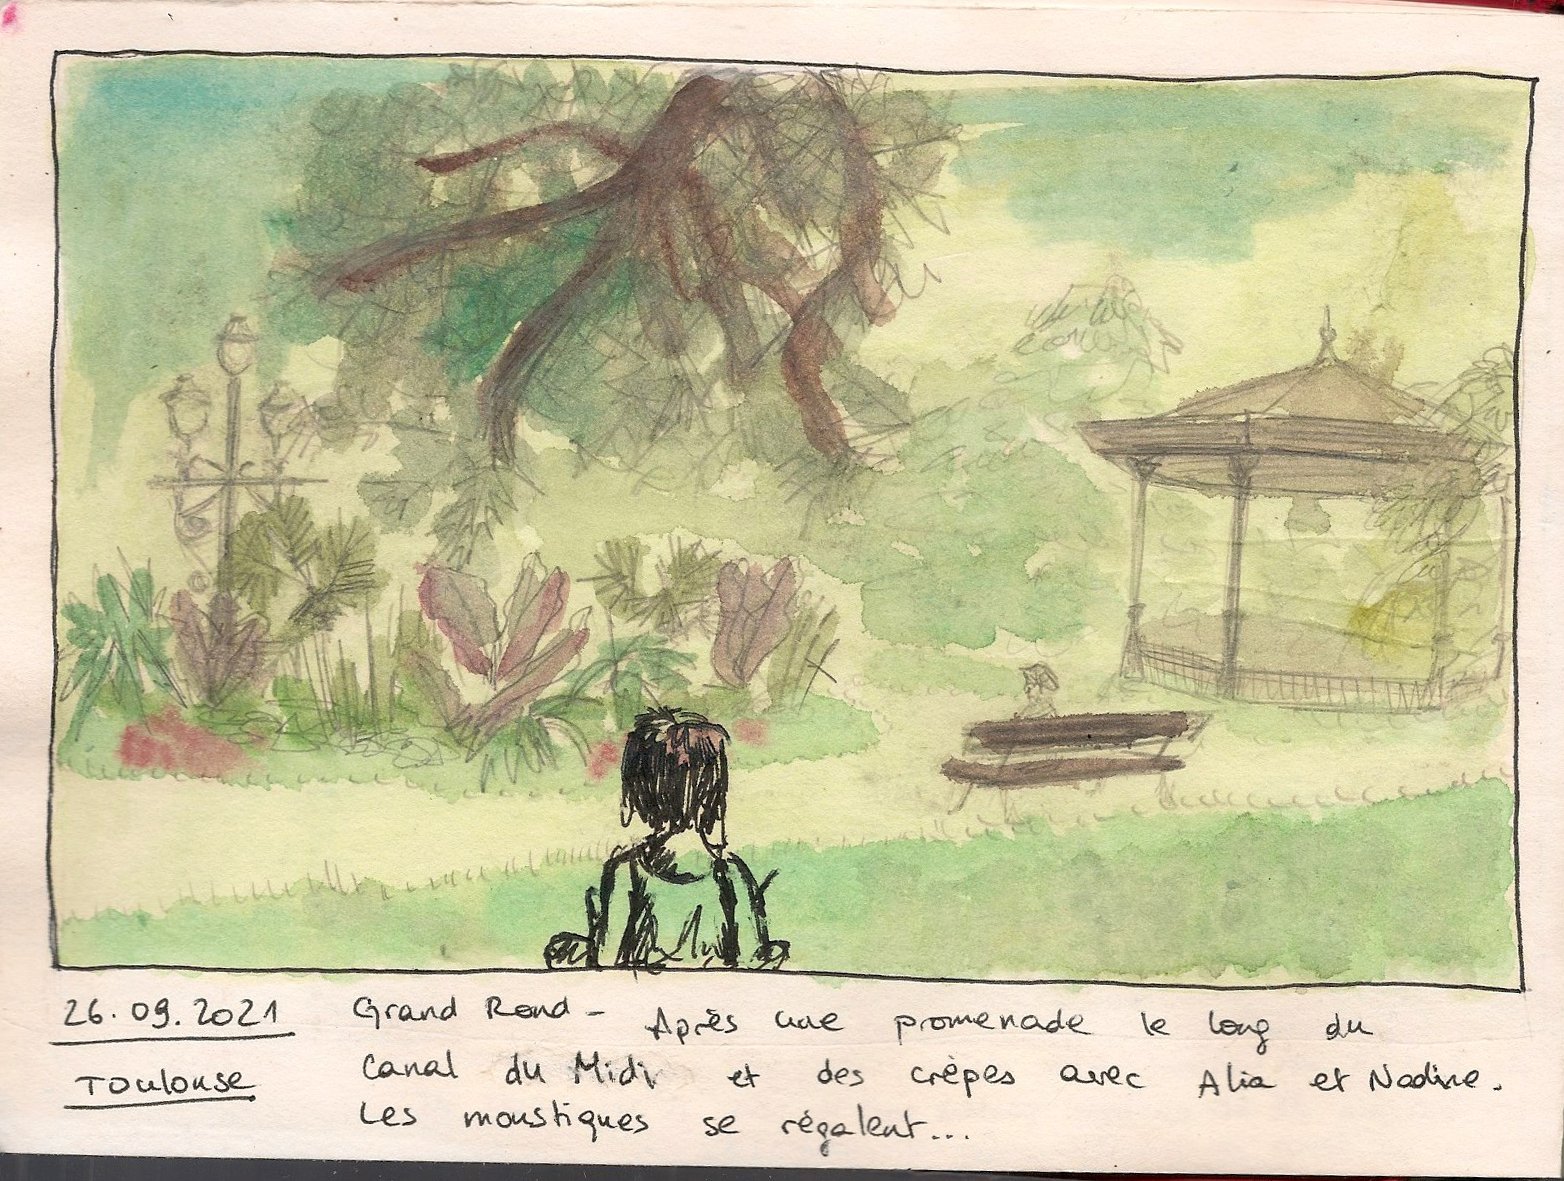 26.09.2021 Grand Rond - Après une promenade le long du
Toulouse Canal du Midi et des crêpes avec Alia et Nadine.
Les moustiques se régalent...